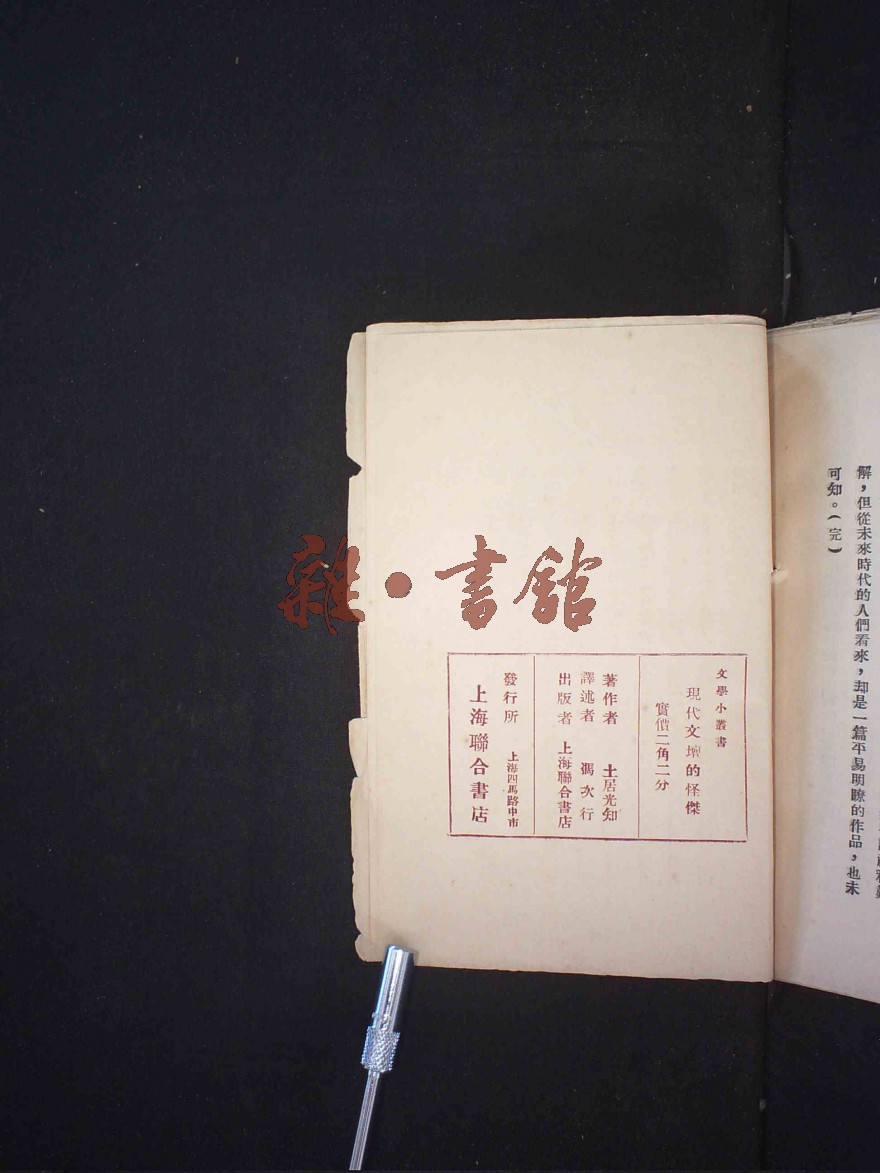 解，但從未來時代的人們看來，却是一篇平易明瞭的作品，也未
可知。（完）
文學小叢書
現代文壇的怪傑
實價二角二分
著作者　土居光知
譯述者　馮次行
出版者　上海聯合書店
發行所　上海四馬路中市
上海聯合書店
雜·書館